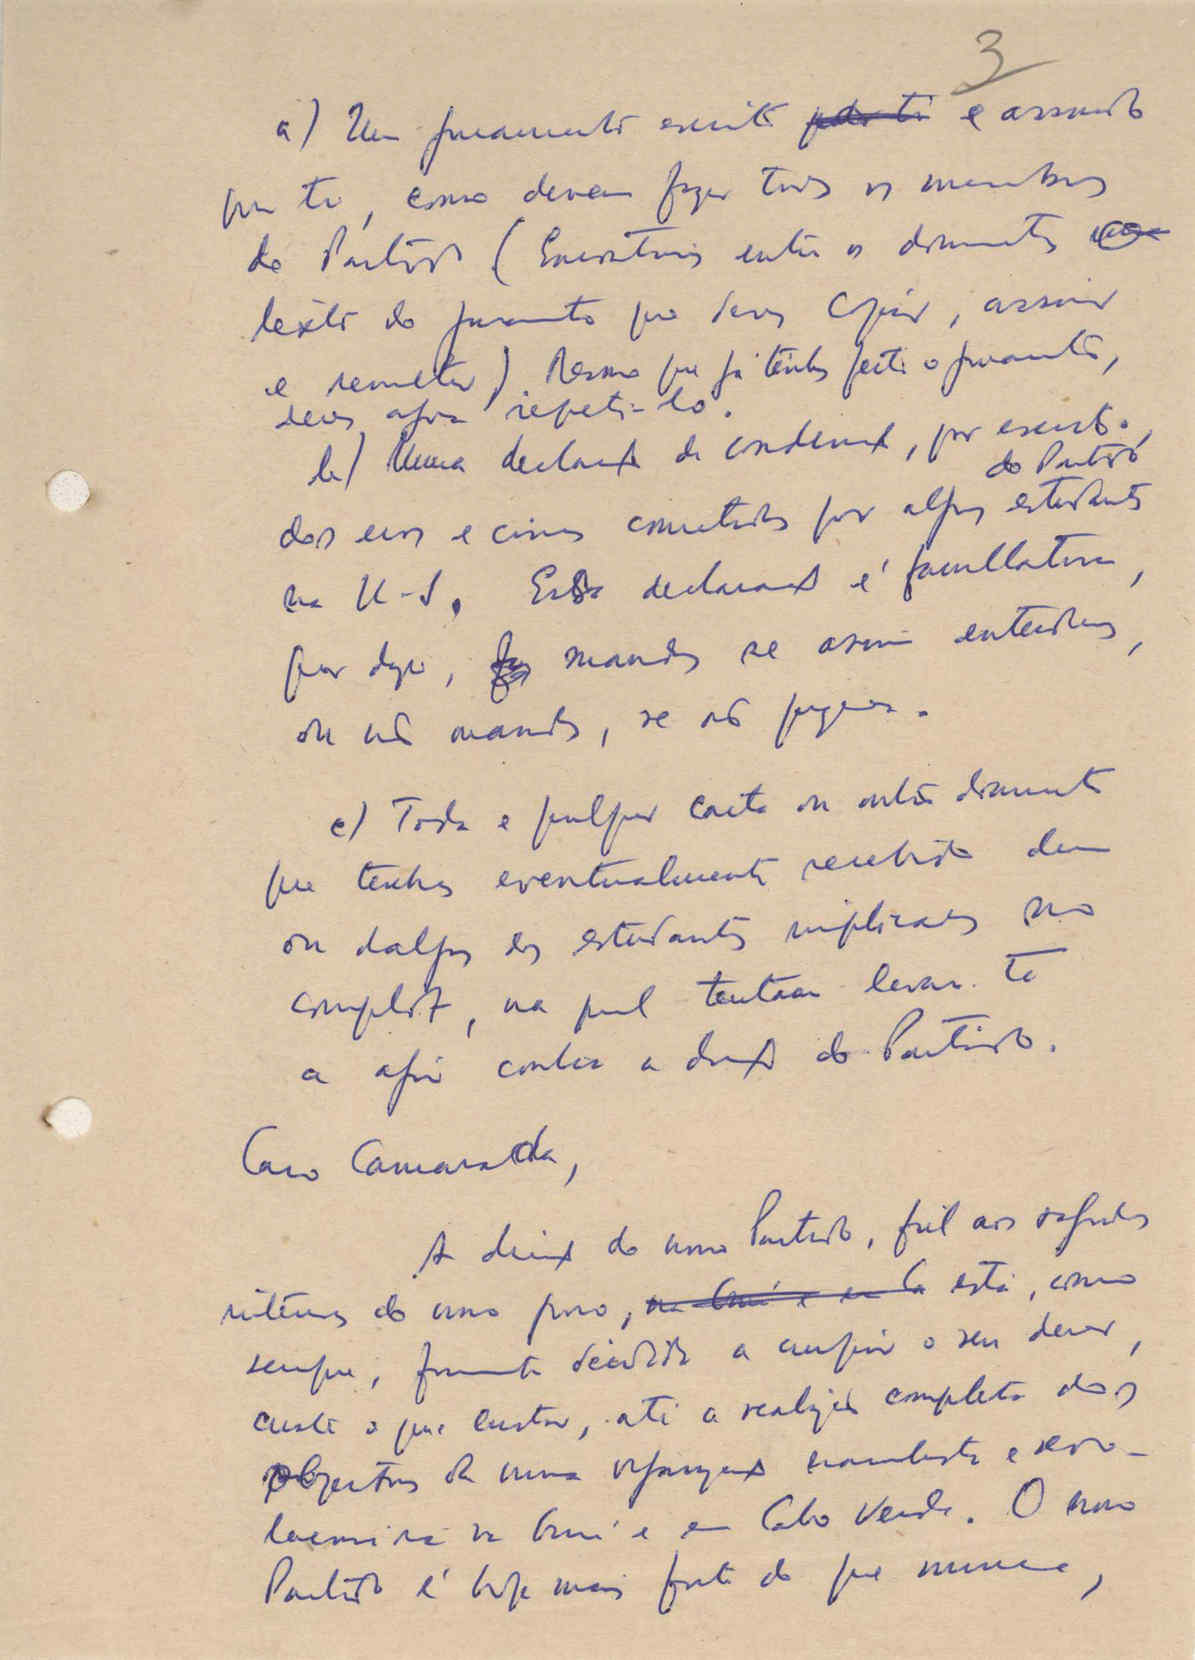 3
a) Um juramento escrito por ti e assinado
por ti, como devem fazer todos os membros
do Partido (Encontrarás entre os documentos
texto do juramento que deves copiar, assinar
e remeter). Mesmo que já tenhas feito o juramento,
deves agora repeti-lo.
b) Uma declaração de condenação, por escrito,
do Partido
dos erros e crimes cometidos por alguns estudantes
na U-S. Essa declaração é facultativa,
quer dizer, mandas se assim entenderes,
ou não mandas, se não quiseres.
c) Toda e qualquer carta ou outro documento
que tenhas eventualmente recebido dum
ou dalguns dos estudantes implicados no
complot, na qual tentam levar-te
a agir contra a direcção do Partido.
Caro Camarada,
A direcção do nosso Partido, fiel aos sagrados
interesses do nosso povo, na Guiné e em Ca está, como
sempre, firmemente decidida a cumprir o seu dever,
custe o que custar, até a realização completa dos
objectivos da nossa organização nacionalista e revo-
lucionária na Guiné e em Cabo Verde. O nosso
Partido é hoje mais forte do que nunca,